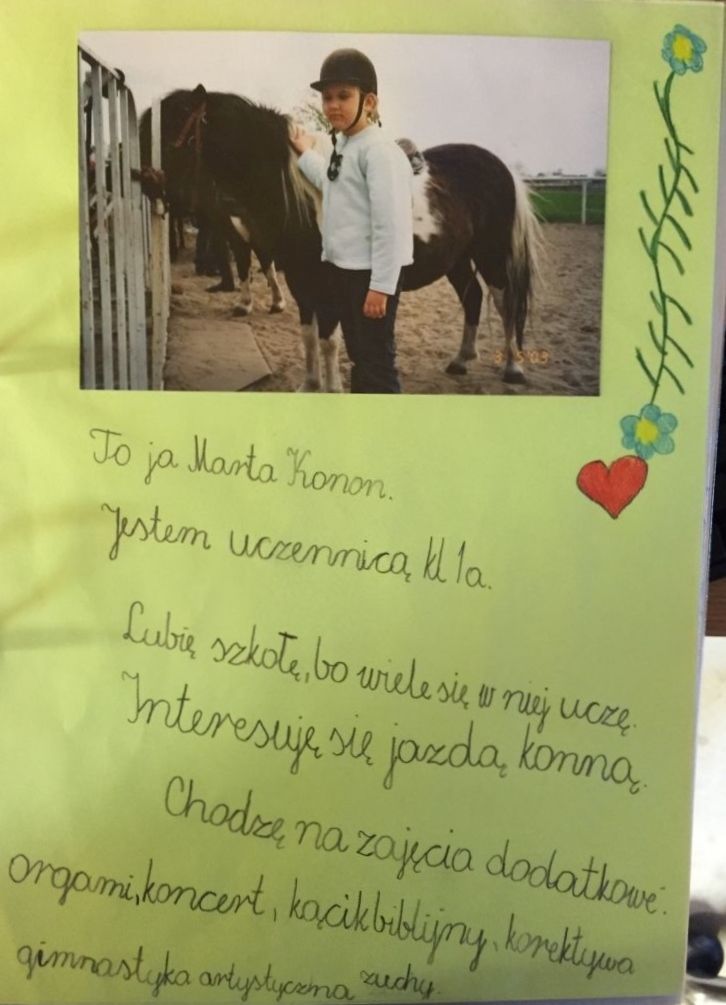 3 5 03
To ja Marta Konon.
Jestem uczennicą kl 1a.
Lubię szkołę, bo wiele się w niej uczę.
Interesuję się jazdą konną.
Chodzę na zajęcia dodatkowe:
orgami, koncert, kącik biblijny, korektywa
gimnastyka artystyczna zuchy.